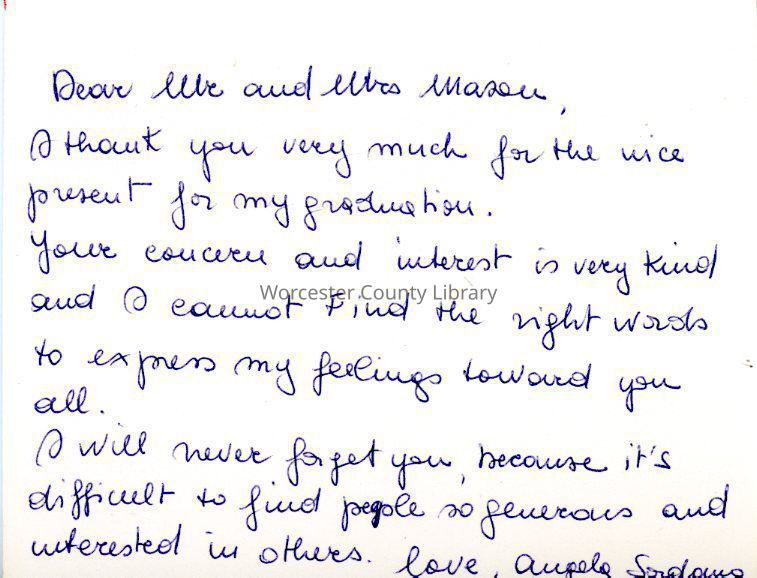 Dear Mr and Mrs Mason,
I thank you very much for the nice
present for my graduation.
Your concern and interest is very kind
and I cannot find the right words
Worcester County Library
to express my feelings toward you
all.
I will never forget you, because it's
difficult to find people so generous and
interested in others. Love, Angela